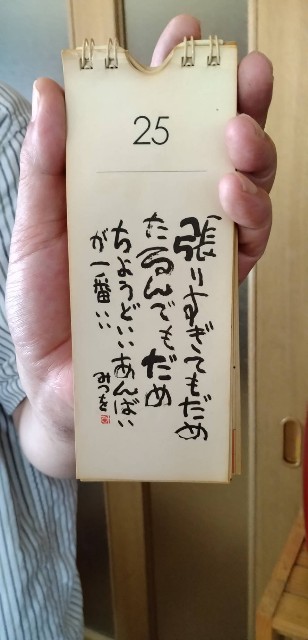 25
張りすぎてもだめ
たるんでもだめ
ちょうどいいあんばい
が一番いい
みつを